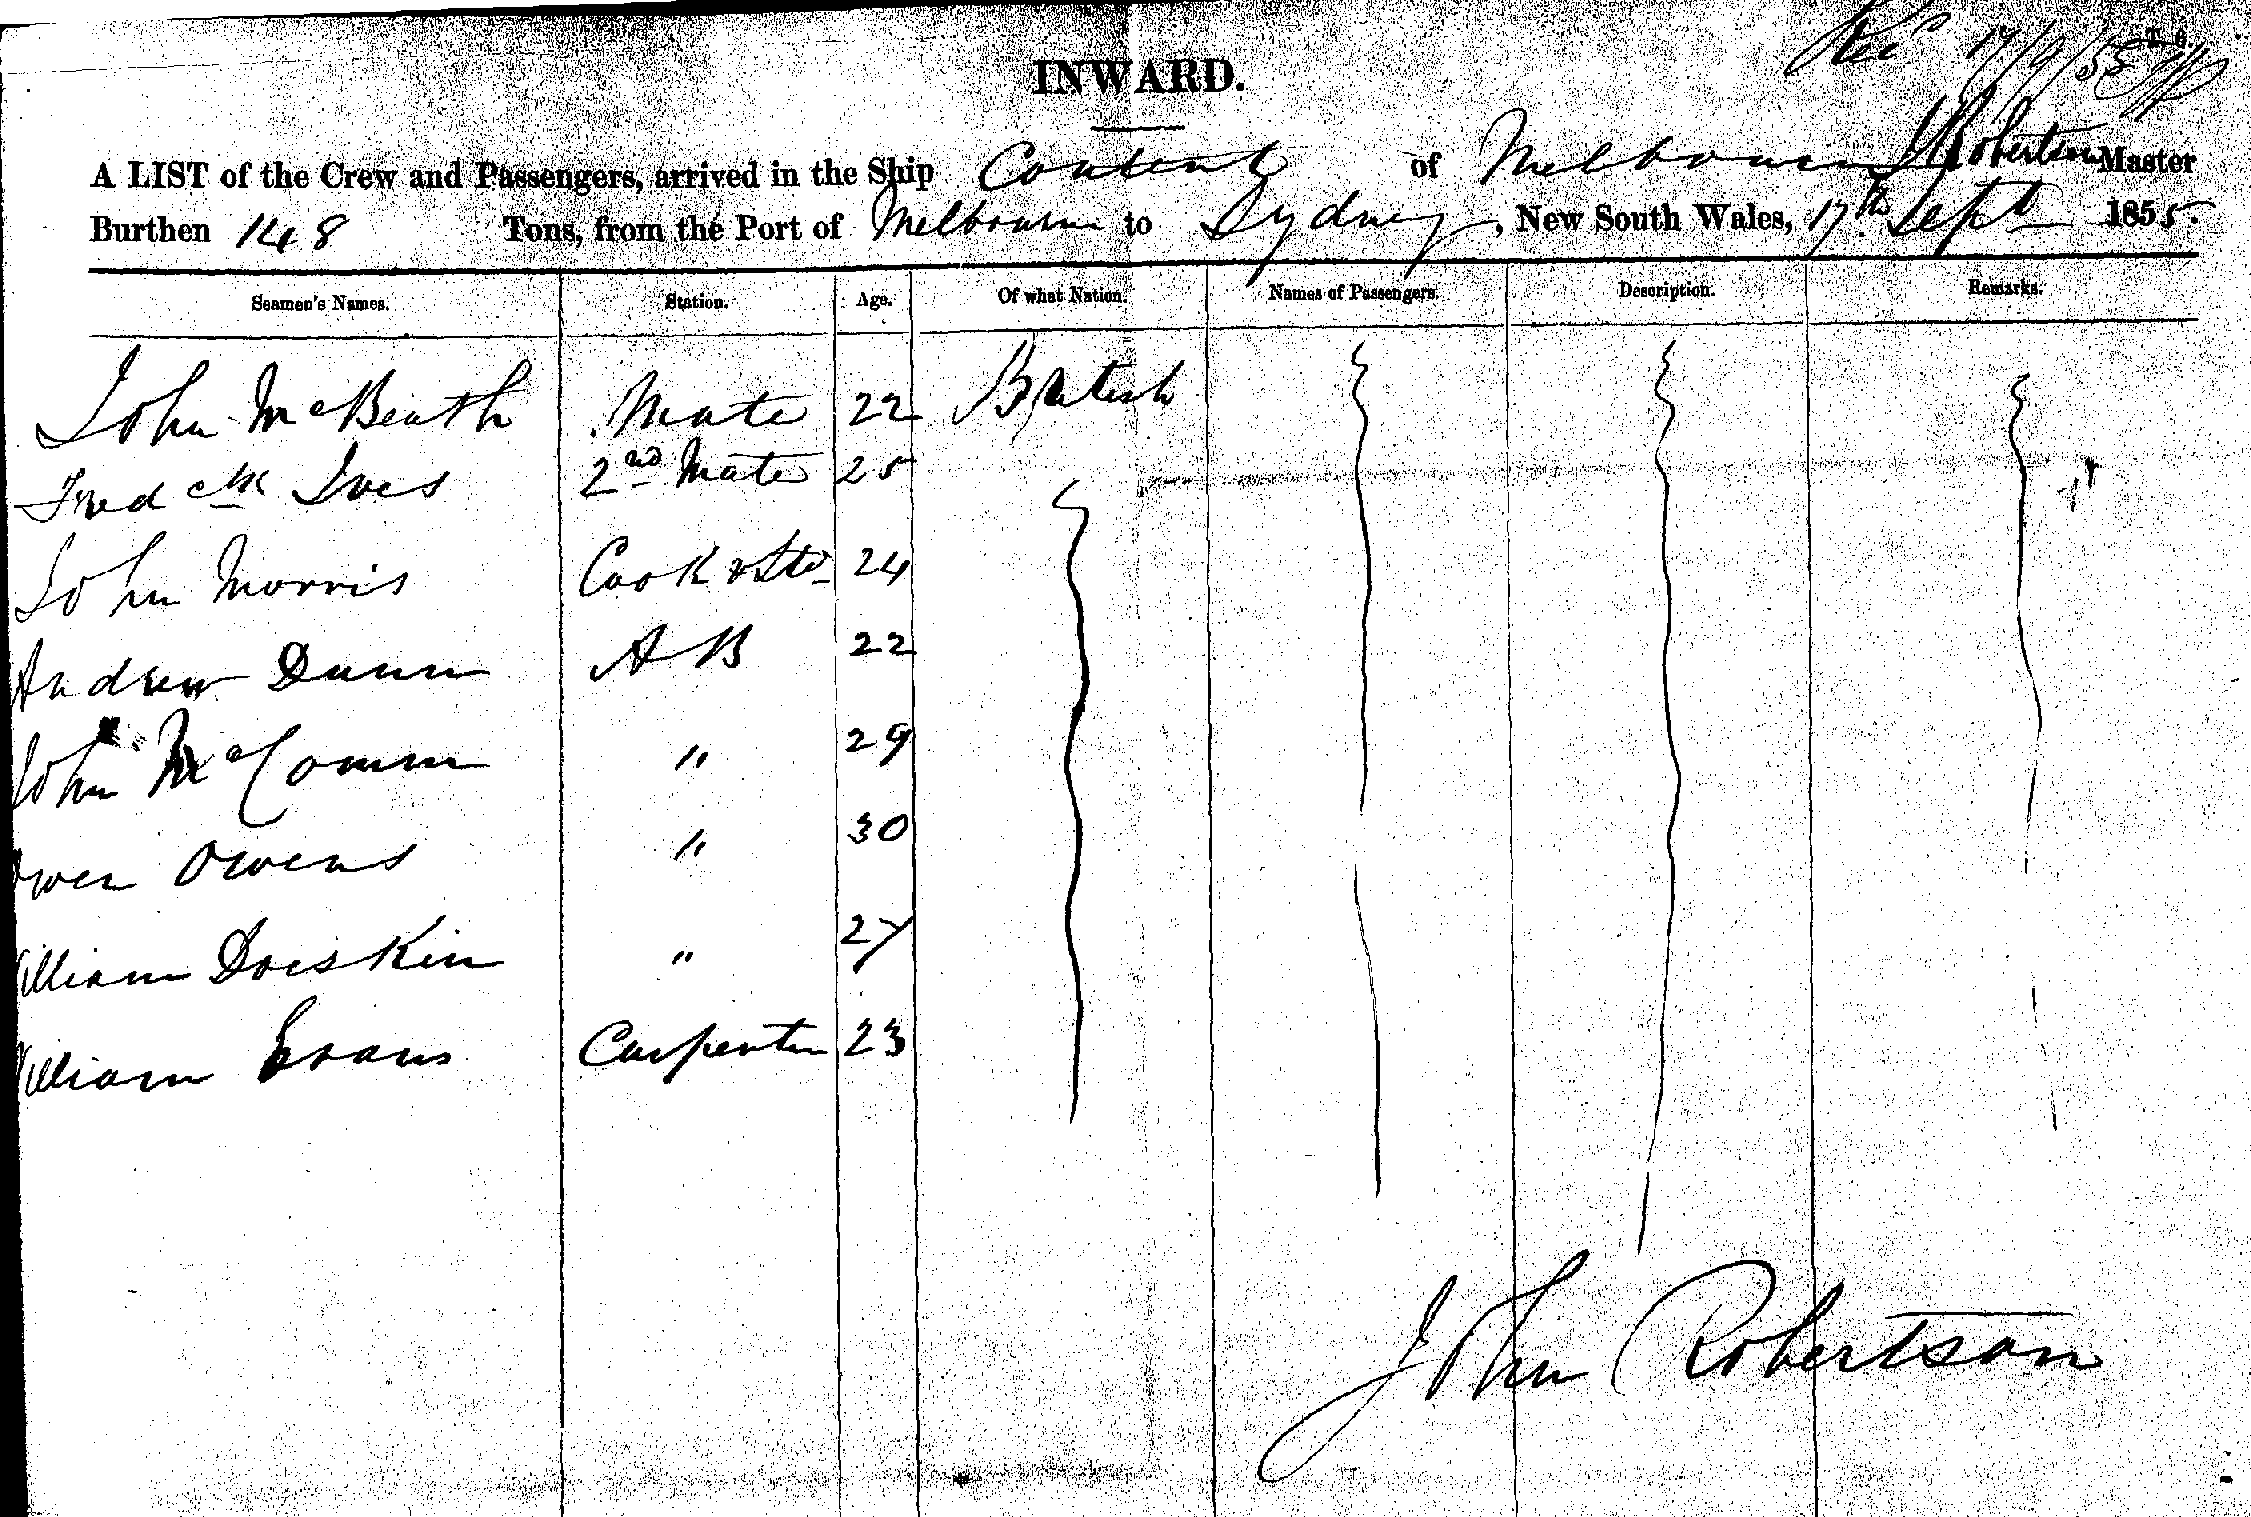 Rec 17/9/55
INWARD.
A LIST of the Crew and Passengers, arrived in the Ship Content of Melbourne J Robertson Master
Burthen 148 Tons, from the Port of Melbourne to Sydney, New South Wales, 17th Sept 1855.
Seamen's Names. Station. Age. Of what Nation. Names of Passengers. Description. Remarks.
John McBeath Mate 22 British
Fredck Ives 2nd Mate 25
John Morris Cook & Std 24
Andrew Dunn A B 22
John McComm " 29
Owen Owens " 30
William Doeskin " 27
William Evans Carpenter 23
John Robertson